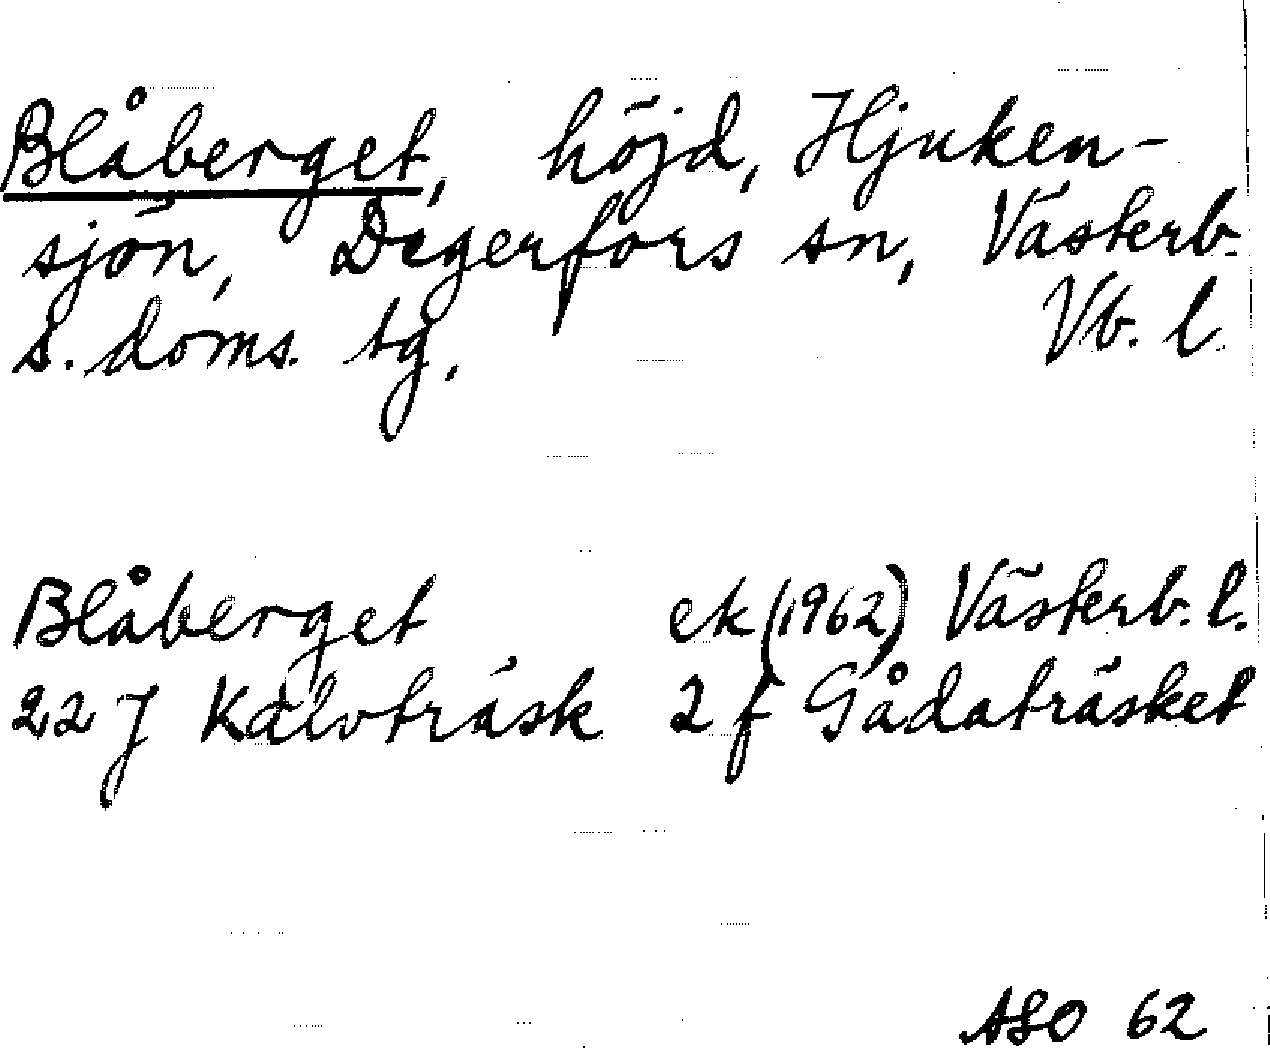 Blåberget, höjd, Hjuken-
sjön, Degerfors sn, Västerb.
s. doms. tg. Vb. l.
Blåberget ek (1962) Västerb. l.
22 J Kalvträsk 2 f Gådaträsket
ASO 62